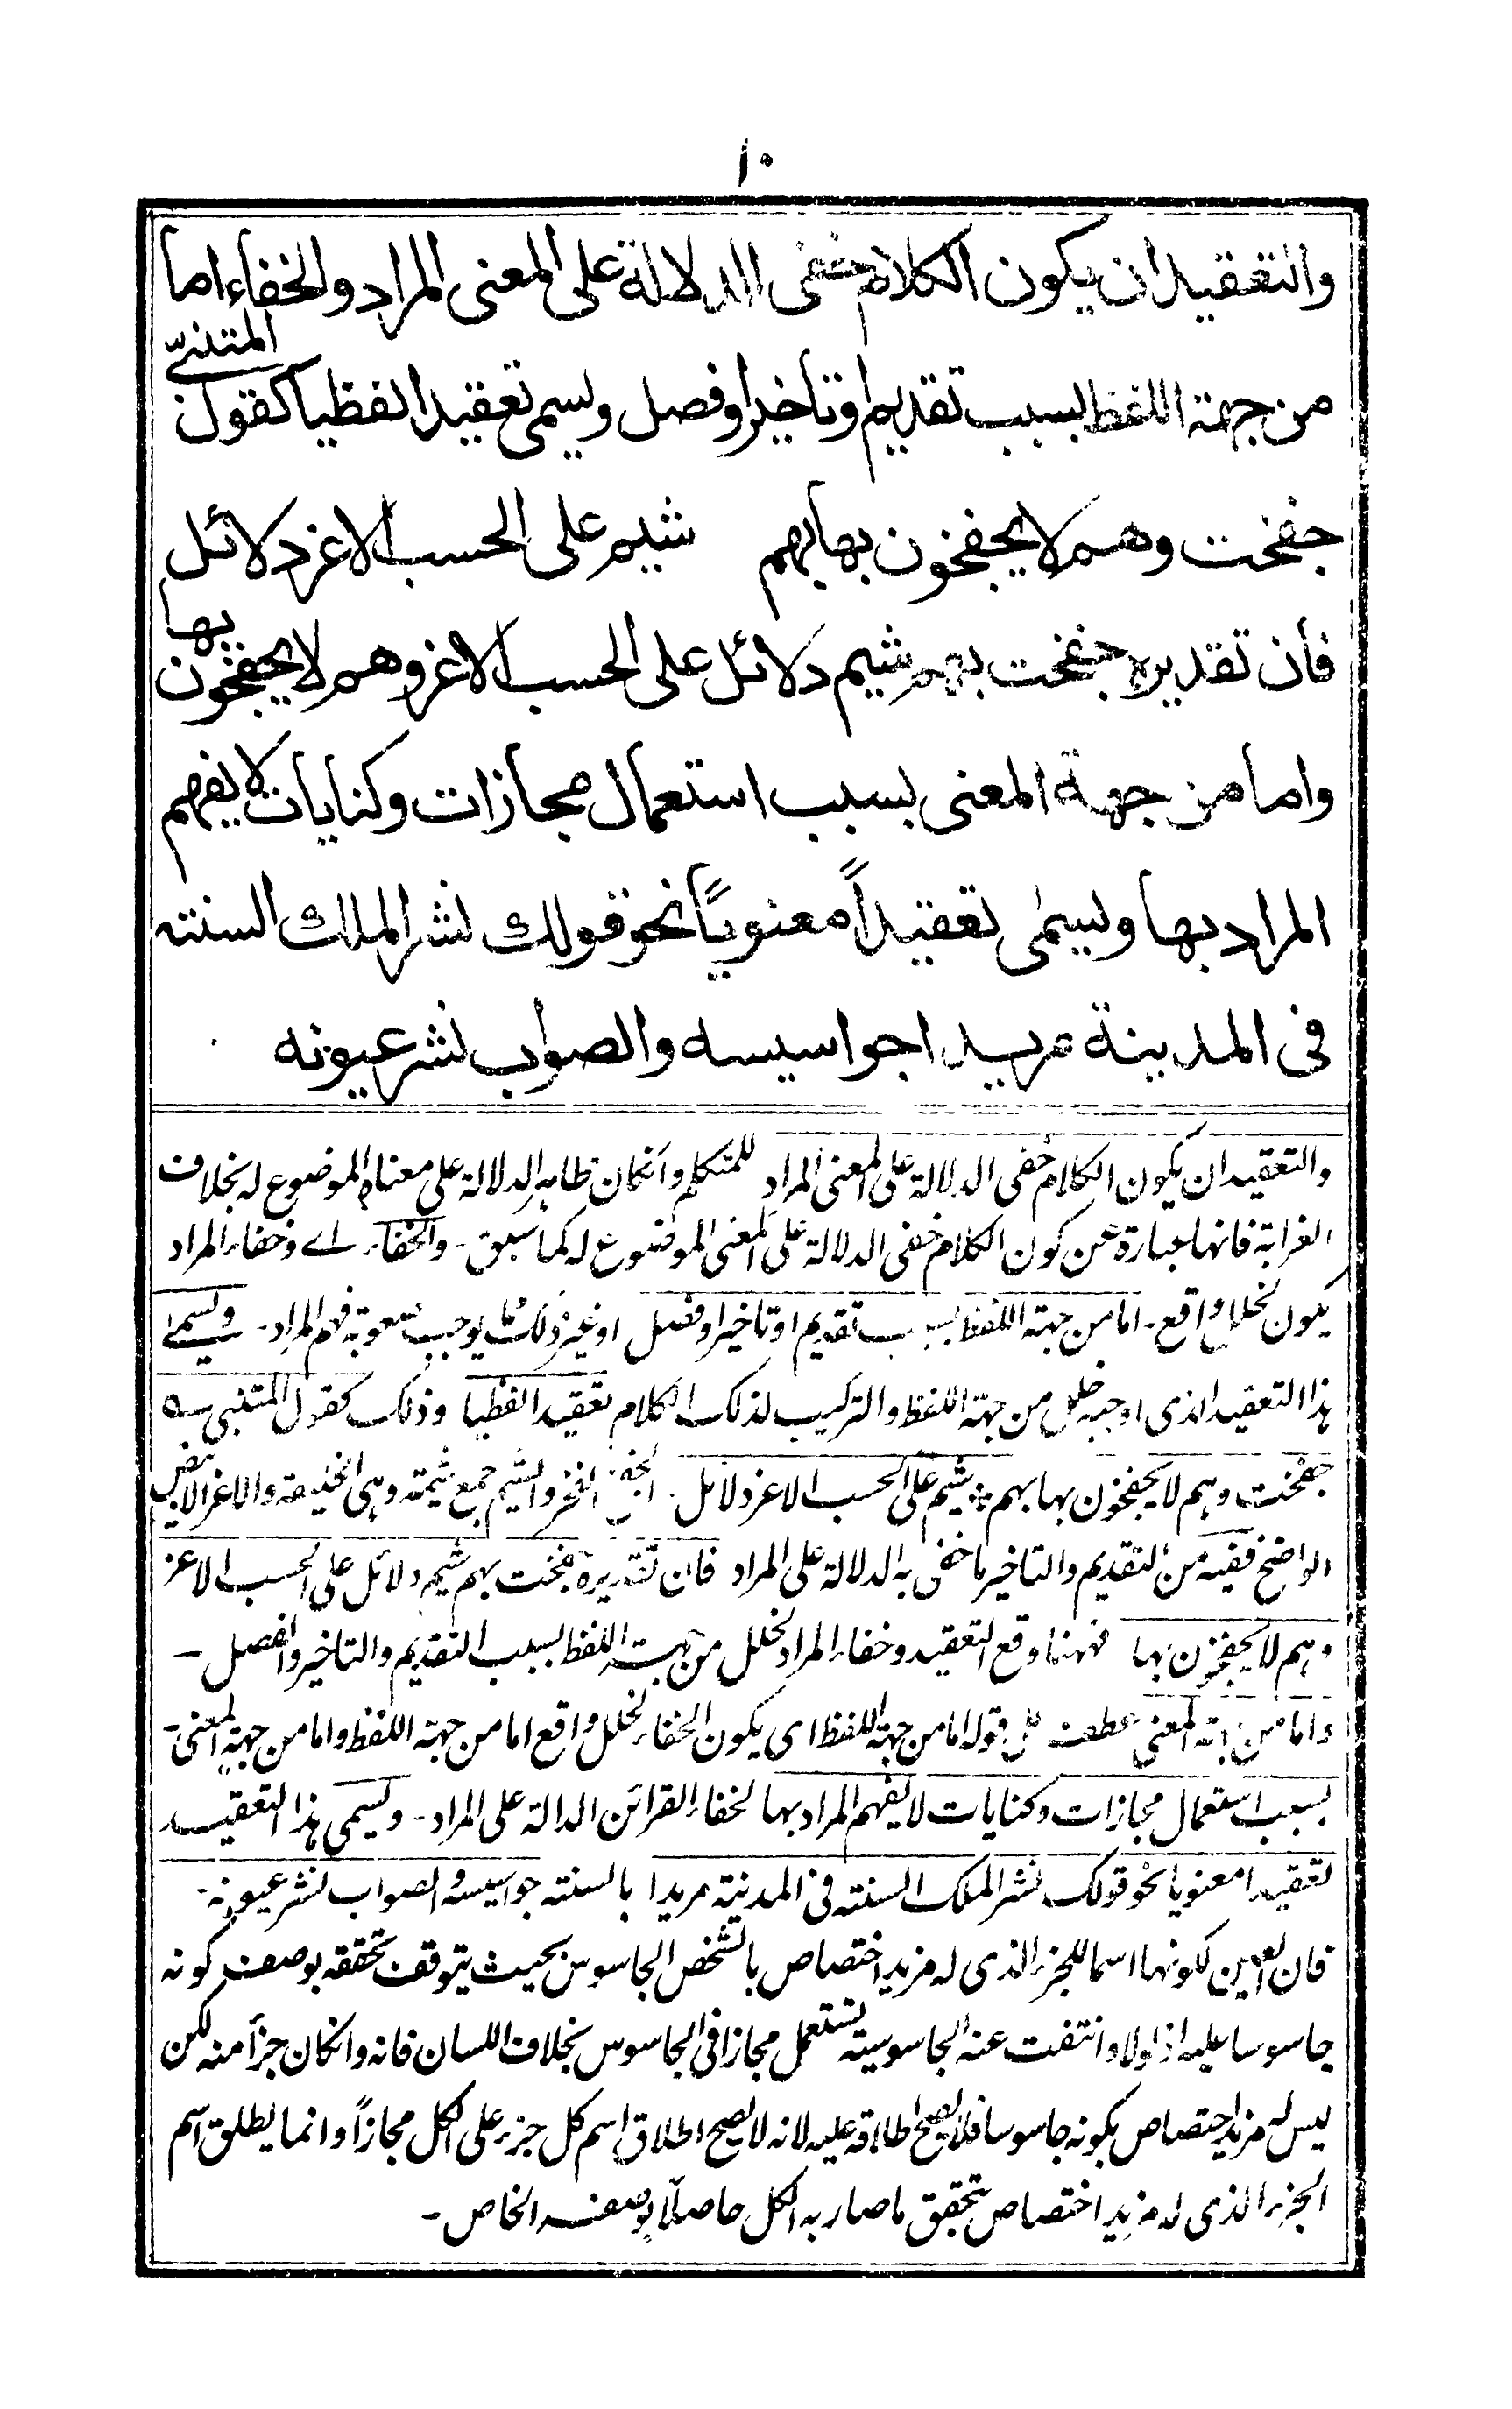 ١٠
والتعقيد ان يكون الكلام خفى الدلالة على المعنى المراد والخفاء اما
من جهة اللفظ بسبب تقديم او تاخير او فصل ويسمى تعقيدا لفظيا كقول المتنبّي
جفخت وهم لا يجفخون بها بهم شيم على الحسب الاغر دلائل
فان تقديره جفخت بهم شيم دلائل على الحسب الاغر وهم لا يجفخون بها
واما من جهة المعنى بسبب استعمال مجازات وكنايات لا يفهم
المراد بها ويسمى تعقيداً معنوياً نحو قولك نشر الملك السنته
فى المدينة مريدا جواسيسه والصواب نشر عيونه
والتعقيد ان يكون الكلام خفى الدلالة على المعنى المراد للمتكلم وانكان ظاهر الدلالة على معناه الموضوع له بخلاف
الغرابة فانها عبارة عن كون الكلام خفى الدلالة على المعنى الموضوع له كما سبق - والخفاء اے وخفاء المراد
يكون لخلل واقع - اما من جهة اللفظ بسبب تقديم او تاخير او فصل او غير ذلك مما يوجب صعوبة فهم المراد - ويسمى
هذا التعقيد الذى اوجبه خلل من جهة اللفظ والتركيب لذلك الكلام تعقيدا لفظيا وذلك كقول المتنبى ؎
جفخت وهم لا يجفخون بها بهم شيم على الحسب الاغر دلائل . الجفخ الفخر والشيم جمع شيمة وهى الخليقة والاغر الابيض
الواضح ففيه من التقديم والتاخير ما خفى به الدلالة على المراد فان تقديره جفخت بهم شيم دلائل على الحسب الاغر
وهم لا يجفخون بها فههنا وقع التعقيد وخفاء المراد لخلل من جهة اللفظ بسبب التقديم والتاخير والفصل -
واما من جهة المعنى عطف على قوله اما من جهة اللفظ اى يكون الخفاء لخلل واقع اما من جهة اللفظ واما من جهة المعنى -
بسبب استعمال مجازات وكنايات لا يفهم المراد بها لخفاء القرائن الدالة على المراد - ويسمى هذا التعقيد
تعقيدا معنويا نحو قولك نشر الملك السنته فى المدينة مريدا بالسنته جواسيسه والصواب نشر عيونه -
فان العين لكونها اسما للجزء الذى له مزيد اختصاص بالشخص الجاسوس بحيث يتوقف تحققه بوصف كونه
جاسوسا عليه اذ لولا وانتفت عنه الجاسوسية تستعمل مجازا فى الجاسوس بخلاف اللسان فانه وانكان جزأ منه لكن
ليس له مزيد اختصاص بكونه جاسوسا فلا يصح اطلاقه عليه لانه لا يصح اطلاق اسم كل جزء على الكل مجازاً وانما يطلق اسم
الجزء الذى له مزيد اختصاص بتحقق ما صار به الكل حاصلاً بوصفه الخاص -